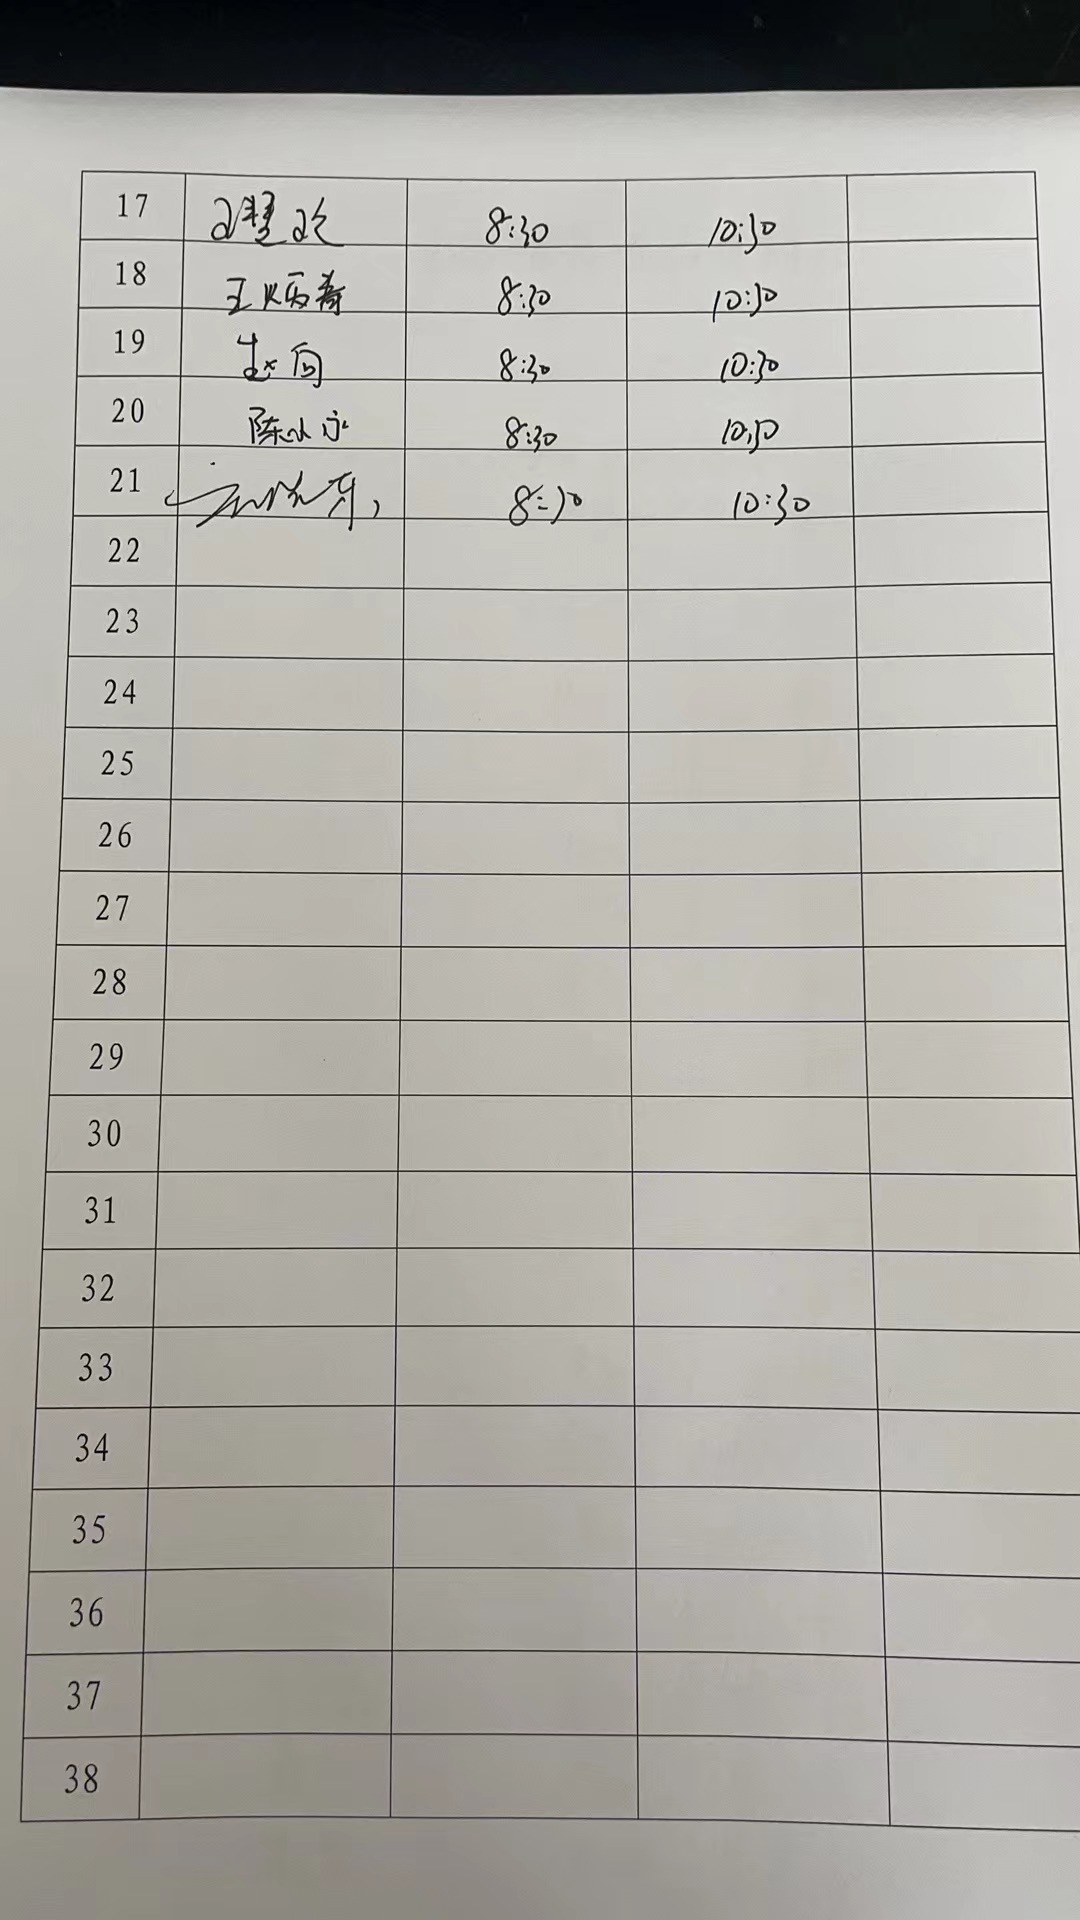 17 8:30 10:30
18 王炳春 8:30 10:30
19 赵向 8:30 10:30
20 陈小永 8:30 10:30
21 8:30 10:30
22
23
24
25
26
27
28
29
30
31
32
33
34
35
36
37
38